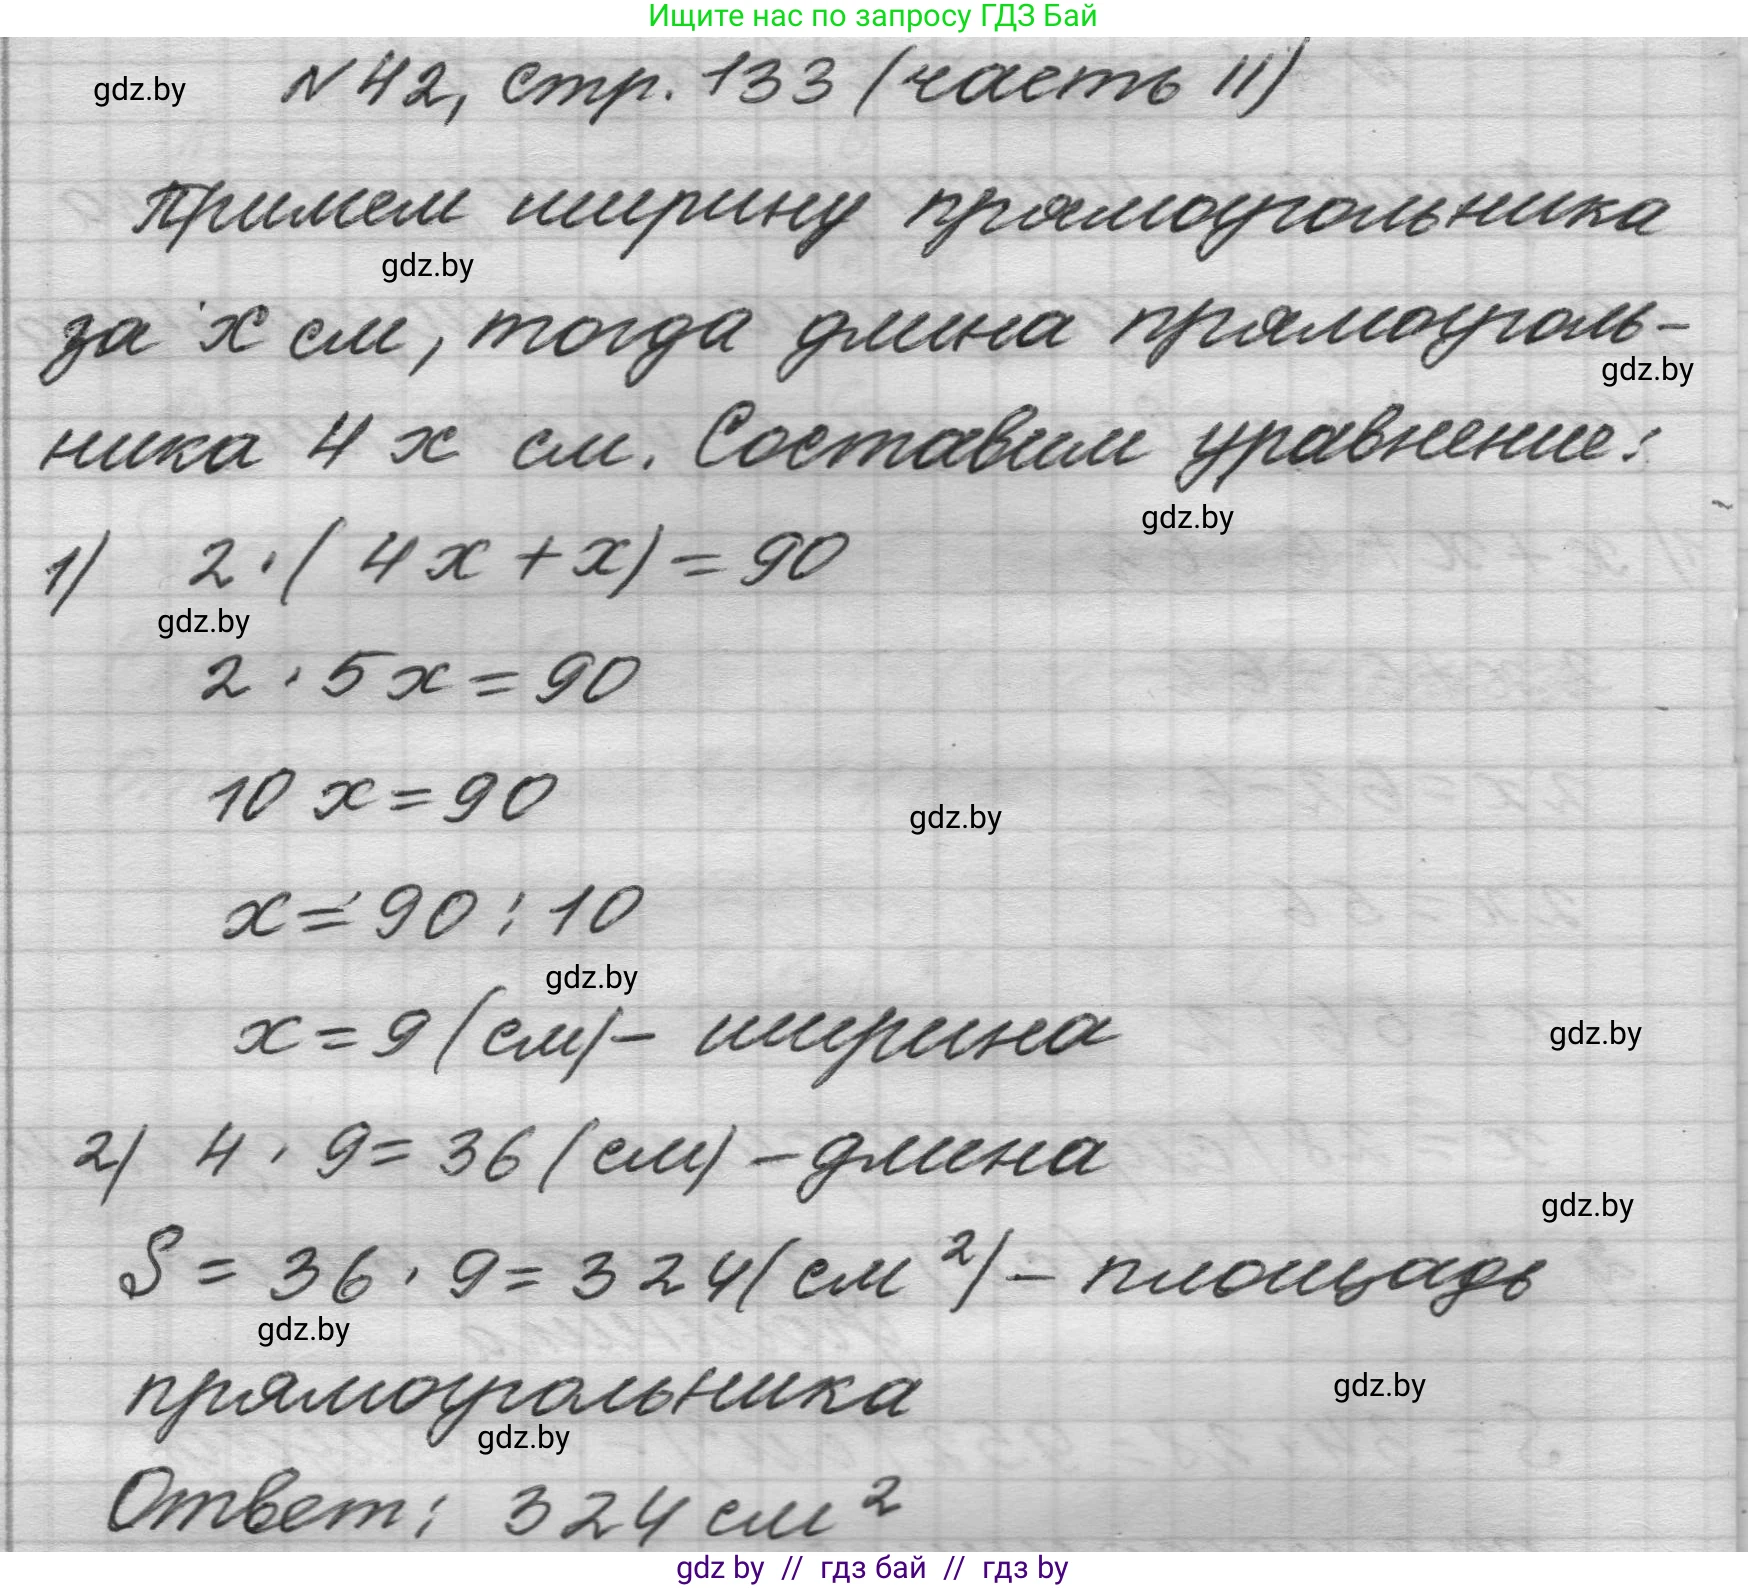 Ищите нас по запросу ГДЗ Бай
gdz.by
N 42, стр. 133 (часть II)
Примем ширину прямоугольника
gdz.by
за x см, тогда длина прямоуголь-
gdz.by
ника 4 x см. Составим уравнение:
gdz.by
1) 2 · ( 4x + x) = 90
gdz.by
2 · 5x = 90
10 x = 90
gdz.by
x = 90 : 10
gdz.by
x = 9 (см) – ширина
gdz.by
2) 4 · 9 = 36 (см) – длина
gdz.by
S = 36 · 9 = 324 (см²) – площадь
gdz.by
прямоугольника
gdz.by
gdz.by
Ответ: 324 см²
gdz by // гдз бай // гдз by